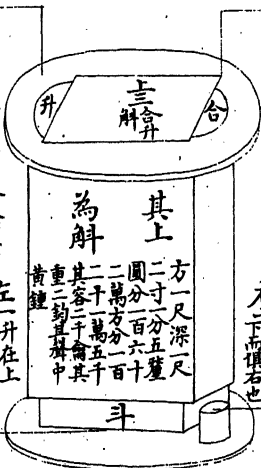 合
上三
合升
斛
升
其上
為斛
方一尺深一尺
二寸一分五釐
圓分一百六十
二萬方分一百
二十一萬五千
其容二千龠其
重二鈞其聲中
黃鍾
斗
左一升在上